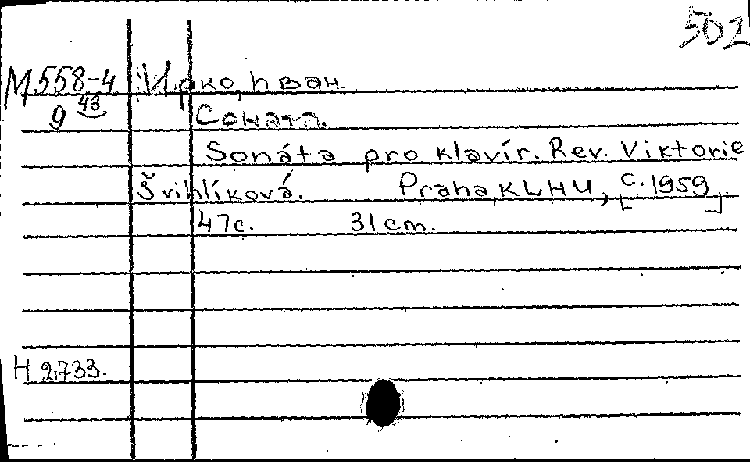 502
М558-4 Ирко, Иван
9 43 Соната.
Sonáta pro klavír. Rev. Viktorie
Švihlíková. Praha, KLHU, [c.1959]
47с. 31 cm.
Н 2733.